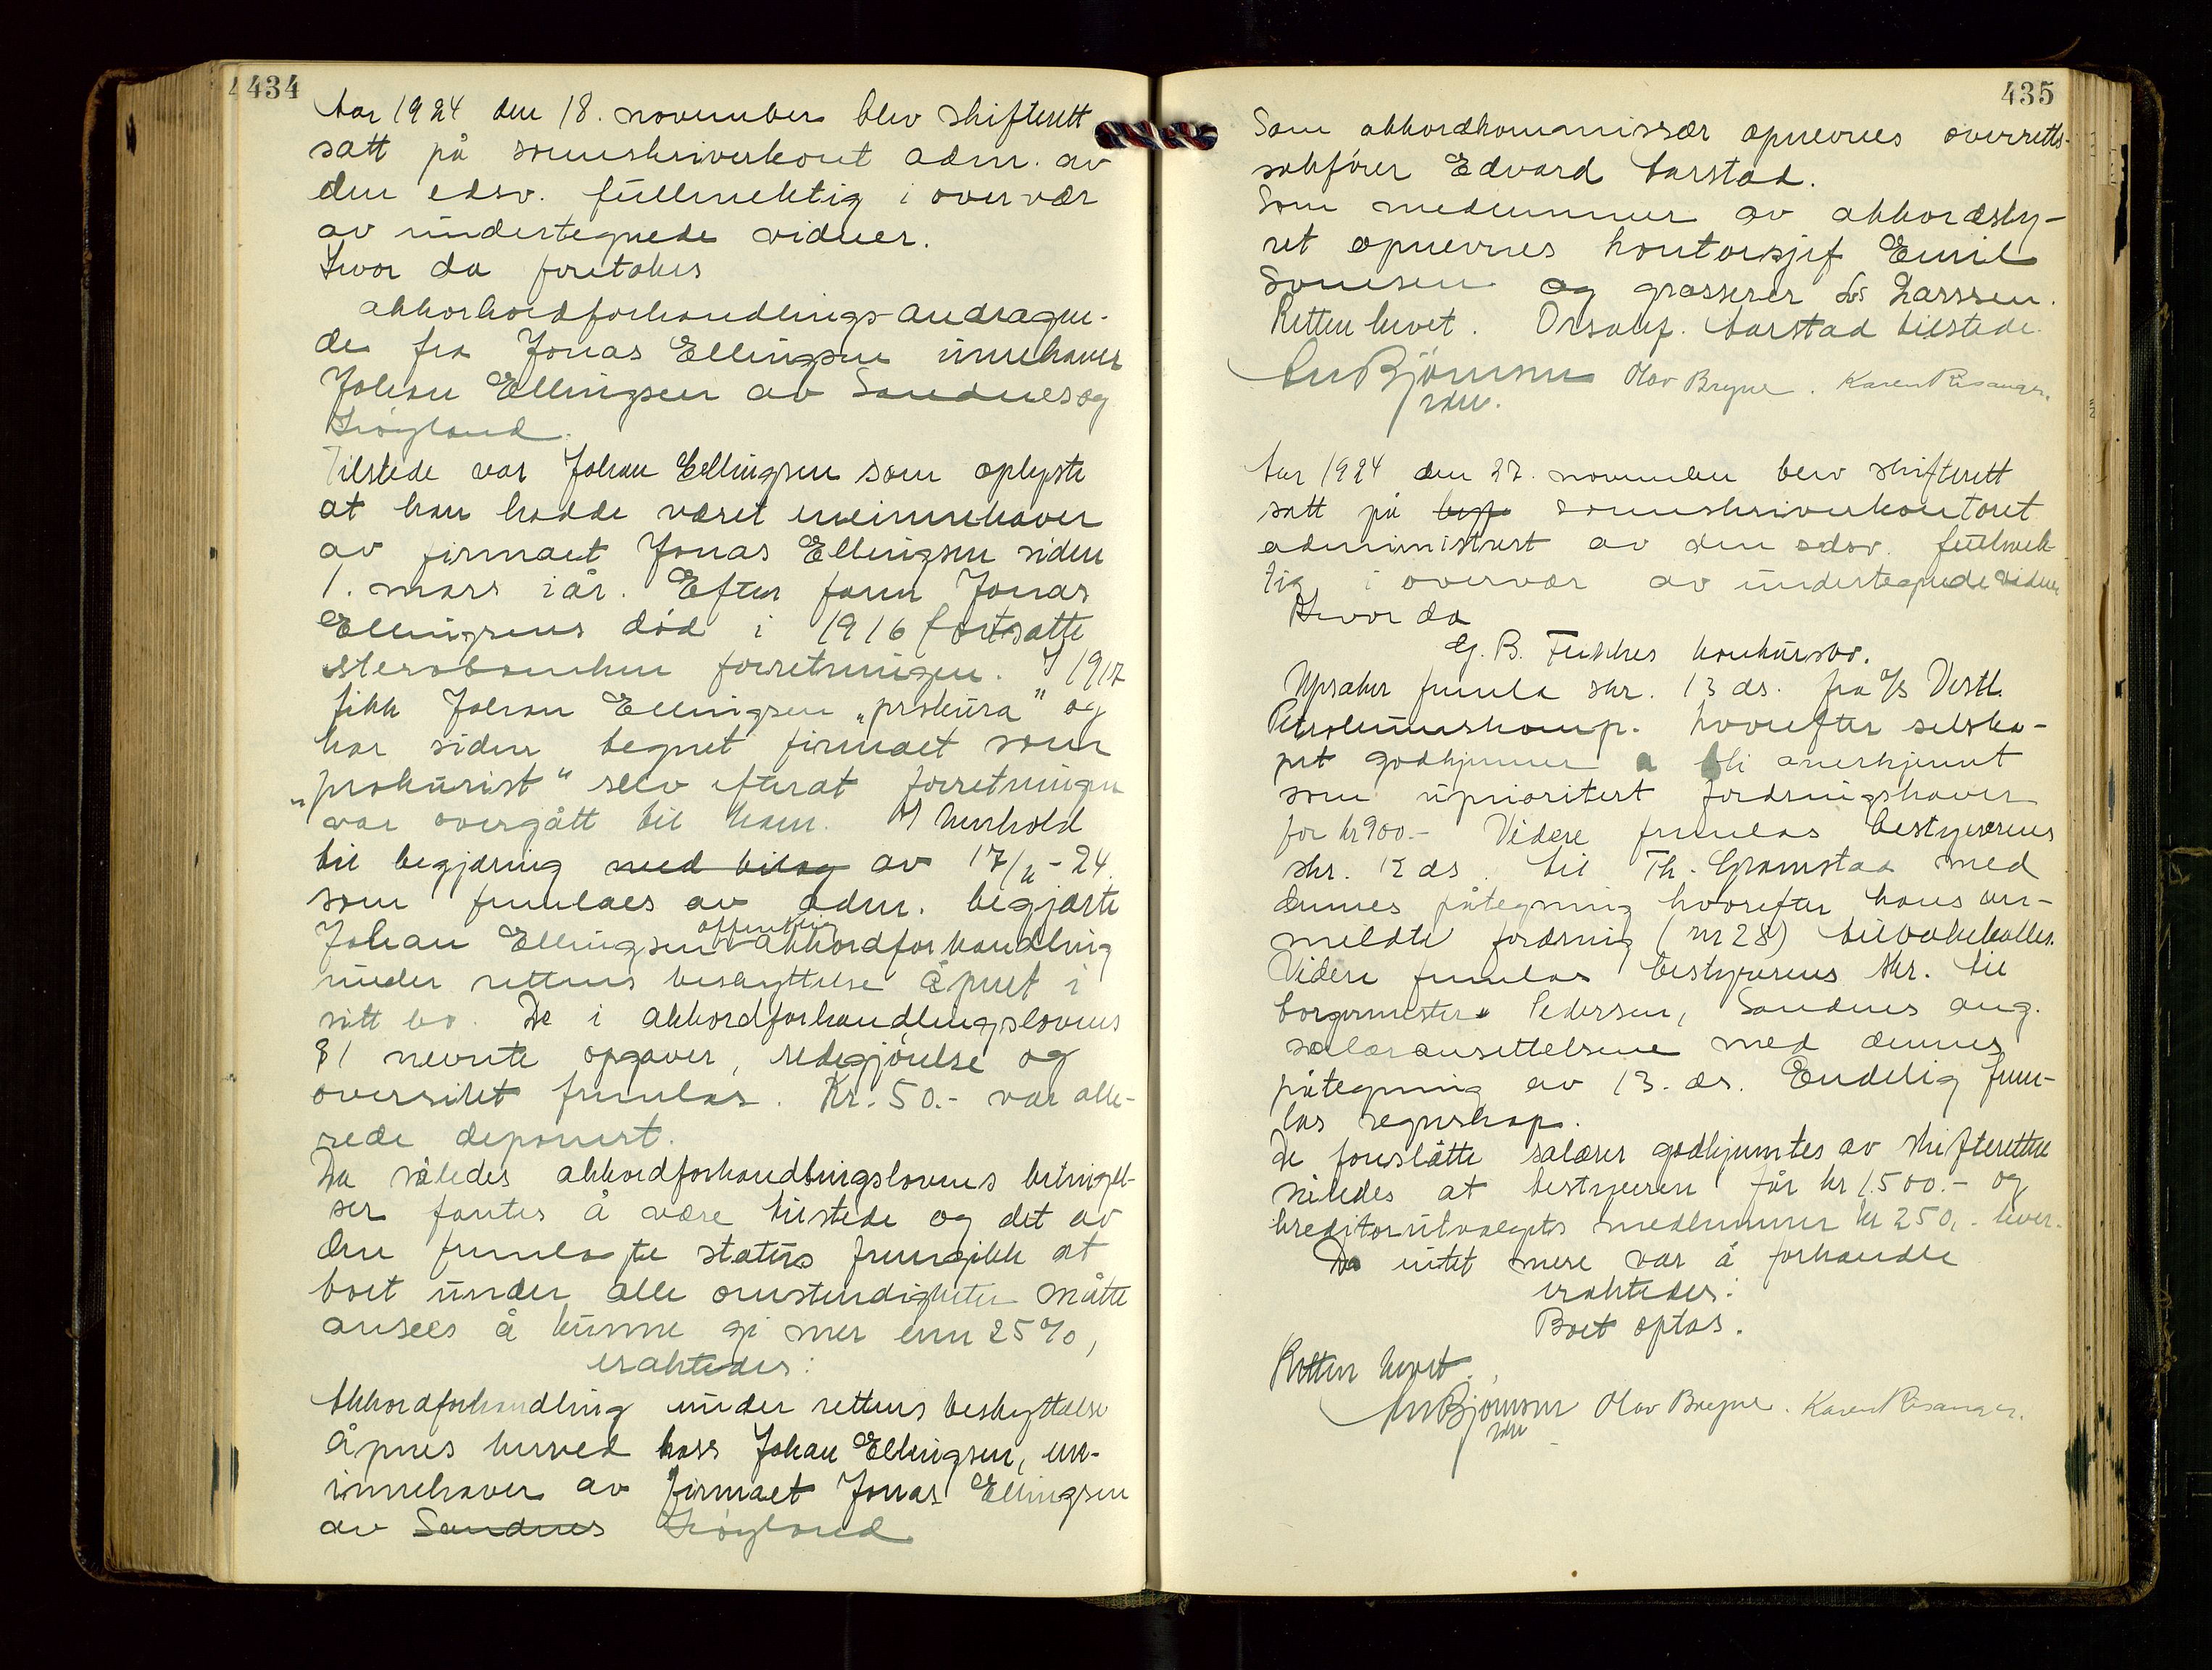 434
Aar 1924 den 18. november blev skifterett
satt på sorenskriverkont adm. av
den edsv. fullmektig i overvær
av undertegnede vidner.
Hvor da foretokes
akkorkordforhandlings-andragen-
de fra Jonas Ellingsen innehaver
Johan Ellingsen av Sandnes og
Høyland.
Tilstede var Johan Ellingsen som oplyste
at han hadde været eneinnehaver
av firmaet Jonas Ellingsen siden
1. mars iår. Efter faren Jonas
Ellingsens død i 1916 fortsatte
sterbo forretningen. I 1917
fikk Johan Ellingsen „prokura" og
har siden tegnet firmaet som
„prokurist" selv efterat forretningen
var overgått til ham. I henhold
til begjæring med bilag av 17/11-24.
som fremlaes av adm. begjærte
Johan Ellingsen offentlig akkordforhandling
under rettens beskyttelse åpnet i
sitt bo. De i akkordforhandlingslovens
§1 nevnte opgaver, redegjørelse og
oversikt fremlas. Kr. 50.- var alle-
rede deponert.
Da således akkordforhandlingslovens betingel-
ser fantes å være tilstede og det av
den fremlagte status fremgikk at
boet under alle omstendigheter måtte
ansees å kunne gi mer enn 25%,
eraktedes:
Akkordforhandling under rettens beskyttelse
åpnes herved hoss Johan Ellingsen, ene-
innehaver av firmaet Jonas Ellingsen
av Sandnes Høyland
435
Som akkordkommissær opnevnes overretts-
sakfører Edvard Aarstad.
Som medlemmer av akkordsty-
ret opnevnes kontorsjef Emil
Sømme og grosserer Larssen.
Retten hevet. Orsakf. Aarstad tilstede.
Bjørnson Olav Bryne. Karen Risanger.
edsv.
Aar 1924 den 27. november blev skifterett
satt på sorenskriverkontoret
administrert av den edsv. fullmek-
tig i overvær av undertegnede vidner
Hvor da
G. B. Fukkes konkursbo.
Upsaker fremla skr. 13 ds. fra A/S Vestl.
Petroleumskomp. hvorefter selska-
pet godkjenner å bli anerkjennt
som uprioritert fordringshaver
for kr 900.- Videre fremlas bestyrerens
skr. 12 ds. til Th. Gramstad med
dennes påtegning hvorefter hans an-
meldte fordring (nr 28) tilbakekalles.
Videre fremlas bestyrerens skr. til
borgermester Pedersen, Sandnes ang.
salæransettelsene med dennes
påtegning av 13. ds. Endelig frem-
las regnskap.
De foreslåtte salærer godkjentes av skifteretten
således at bestyreren får kr 1.500.- og
kreditorutvalgets medlemmer kr 250,- hver.
Da intet mere var å forhandle
eraktedes:
Boet optas.
Retten hevet.
Bjørnson Olav Bryne. Karen Risanger.
edsv